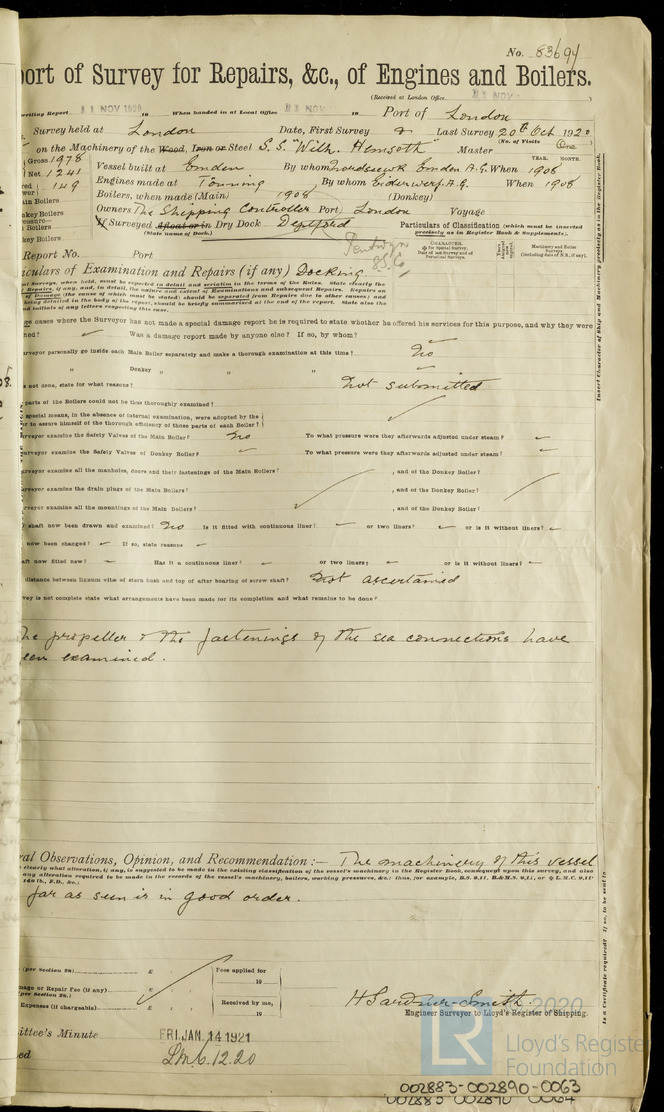 No. 83694
ort of Survey for Repairs, &c., of Engines and Boilers.
(Received at London Office
writing Report 11 NOV 1920 19 When handed in at Local Office 11 NOV 19 Port of London
Survey held at London Date, First Survey & Last Survey 20th Oct 1920
(No. of Visits One
on the Machinery of the Wood, Iron or Steel S.S. "Wilh. Hemsoth" Master
Gross 1978
Net 1241
149
Vessel built at Emden By whom Nordseewk Emden A.G. When 1908
YEAR. MONTH.
Engines made at Tönning By whom Eiderwerf. A.G. When 1908
Boilers, when made (Main) 1908 (Donkey)
Owners The Shipping Controller Port London Voyage
If Surveyed Afloat or in Dry Dock Deptford
(State name of Dock.)
Particulars of Classification (which must be inserted
precisely as in Register Book & Supplements).
Report No. Port
iculars of Examination and Repairs (if any) Docking
ge cases where the Surveyor has not made a special damage report he is required to state whether he offered his services for this purpose, and why they were
ned? Was a damage report made by anyone else? If so, by whom?
rveyor personally go inside each Main Boiler separately and make a thorough examination at this time? No
" Donkey " " "
s not done, state for what reasons? Not submitted
parts of the Boilers could not be thus thoroughly examined?
special means, in the absence of internal examination, were adopted by the
r to assure himself of the thorough efficiency of those parts of each Boiler?
rveyor examine the Safety Valves of the Main Boiler? No To what pressure were they afterwards adjusted under steam?
urveyor examine the Safety Valves of Donkey Boiler? To what pressure were they afterwards adjusted under steam?
urveyor examine all the manholes, doors and their fastenings of the Main Boilers? , and of the Donkey Boiler?
rveyor examine the drain plugs of the Main Boilers? , and of the Donkey Boiler?
rveyor examine all the mountings of the Main Boilers? , and of the Donkey Boiler?
shaft now been drawn and examined? No Is it fitted with continuous liner? or two liners? or is it without liners?
now been changed? If so, state reasons
aft now fitted new? Has it a continuous liner? or two liners? or is it without liners?
distance between lignum vitæ of stern bush and top of after bearing of screw shaft? Not ascertained
vey is not complete state what arrangements have been made for its completion and what remains to be done?
he propeller & the fastenings of the sea connections have
een examined.
ral Observations, Opinion, and Recommendation :— The machinery of this vessel
far as seen is in good order.
(per Section 28) £ : : Fees applied for
19
mage or Repair Fee (if any)
(per Section 28.) £ : :
Expenses (if chargeable) £ : : Received by me,
19
H Gardner-Smith.
Engineer Surveyor to Lloyd's Register of Shipping.
ittee's Minute FRI. JAN. 14 1921
ed
Is a Certificate required? If so, to be sent to
2020
LR
Lloyd's Registe
Foundation
002883-002890-0063
002883-002890-0064